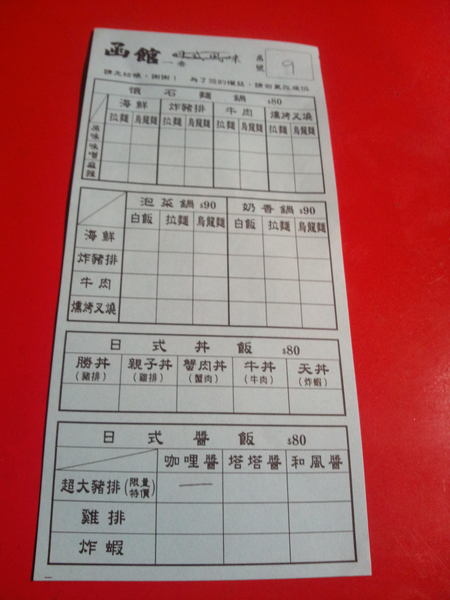 函館
桌號 9
請先結帳，謝謝！
懷石麵鍋 $80
海鮮 炸豬排 牛肉 燻烤叉燒
拉麵 烏龍麵 拉麵 烏龍麵 拉麵 烏龍麵 拉麵 烏龍麵
原味
味噌
麻辣
泡菜鍋 $90 奶香鍋 $90
白飯 拉麵 烏龍麵 白飯 拉麵 烏龍麵
海鮮
炸豬排
牛肉
燻烤叉燒
日式丼飯 $80
勝丼 親子丼 蟹肉丼 牛丼 天丼
(豬排) (雞排) (蟹肉) (牛肉) (炸蝦)
日式醬飯 $80
咖哩醬 塔塔醬 和風醬
超大豬排(限量特價) 一
雞排
炸蝦